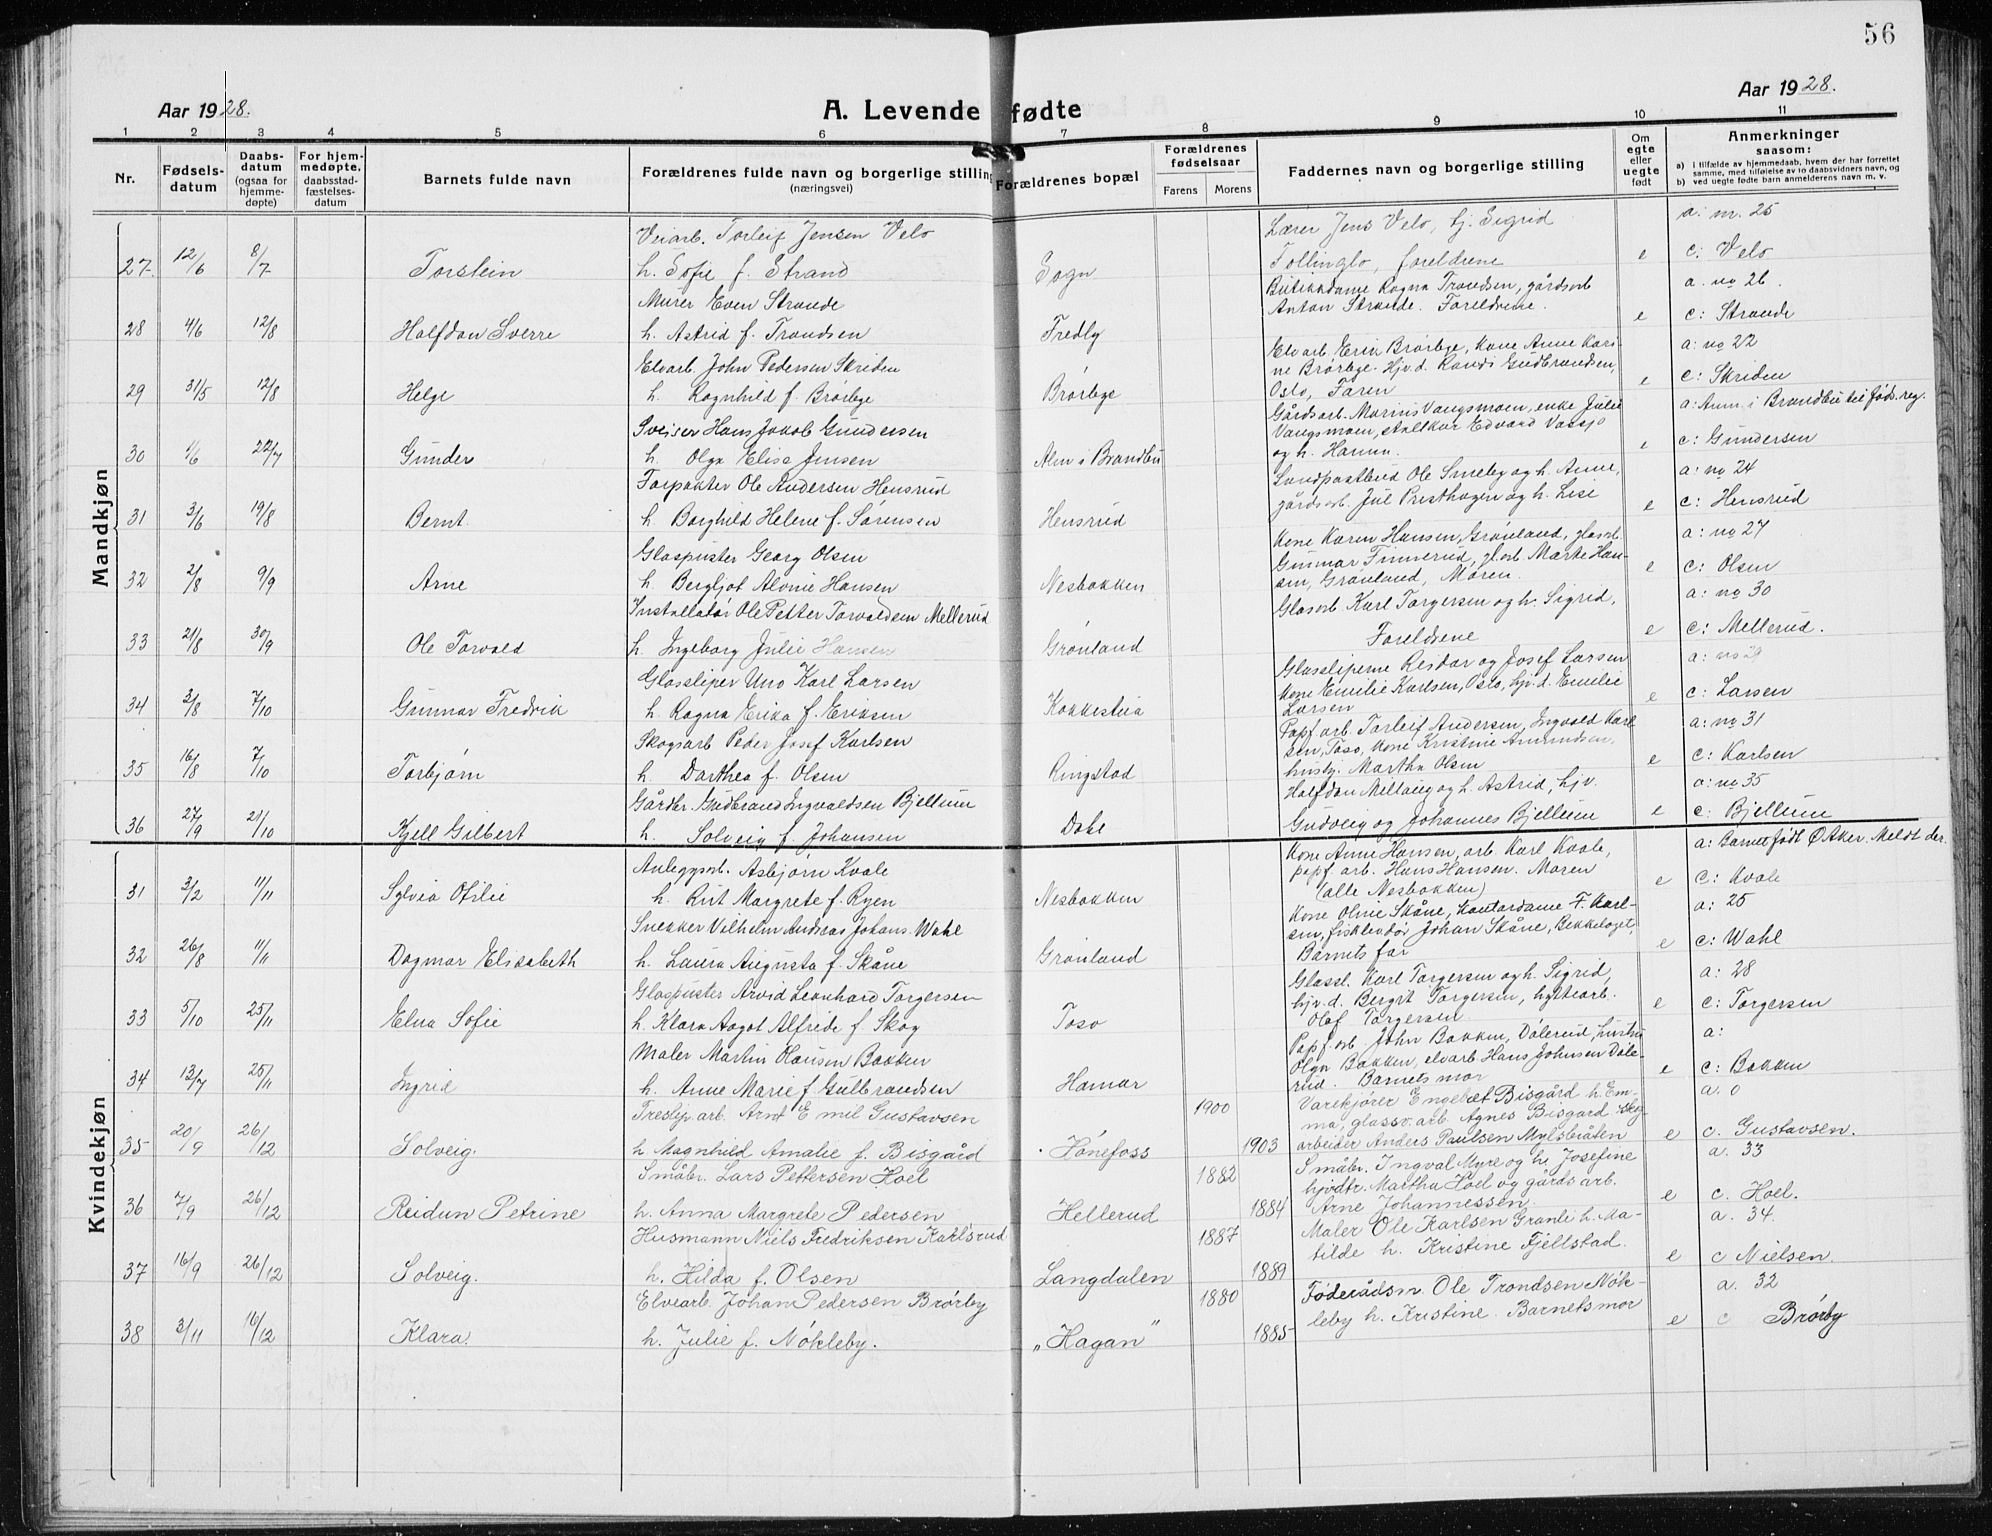 56
Aar 1928.
A. Levende fødte
Aar 1928.
1 2 3 4 5 6 7 8 9 10 11
Nr.
Fødsels-datum
Daabs-datum (ogsaa for hjemme-døpte)
For hjem-medøpte, daabsstad-fæstelses-datum
Barnets fulde navn
Forældrenes fulde navn og borgerlige stilling (næringsvei)
Forældrenes bopæl
Forældrenes fødselsaar
Farens Morens
Faddernes navn og borgerlige stilling
Om egte eller uegte født
Anmerkninger saasom:
a) i tilfælde av hjemmedaab, hvem der har forrettet samme, med tilføielse av to daabsvidners navn, og
b) ved uegte fødte barn anmelderens navn m. v.
Mandkjøn
Veiarb. Torleif Jensen Velo Lærer Jens Velo, tj. Sigrid a: nr. 25
27. 12/6 8/7 Torstein h. Sofie f. Strand Sogn Tollinglo, foreldrene e c: Velo
Murer Even Strande Butikkdame Ragna Trondsen, gårdsarb Anton Strande. Foreldrene. a. no 26.
28 4/6 12/8 Halfdan Sverre h. Astrid f. Trondsen Fredly e c: Strande
Elvarb. John Pedersen Skriden Elvarb Erik Brørbye, Kone Anne Kari- a: no 22
29 31/5 12/8 Helge h. Ragnhild f. Brørbye Brørbye ne Brørbye. Hjv.d. Randi Gudbrandsen, Oslo, Faren e c: Skriden
Sveiser Hans Jakob Gundersen Gårdsarb. Marius Vangsmoen, enke Julie a: Anm. i Brandbu til føds.reg.
30 1/6 22/7 Gunder h. Olga Elise Jensen Alm i Brandbu Vangsmoen, Edvard og h. Hanna. e c: Gundersen
Forpakter Ole Andersen Hensrud Landpostbud Ole Smeby og h. Anne, a: no 24
31 3/6 19/8 Bernt. h. Borghild Helene f. Sørensen Hensrud gårdsarb. Jul Presthagen og h. Lise e c: Hensrud
Glaspuster Georg Olsen Kone Karen Hansen, Grønland, glasarb. a: no 27
32 2/8 9/9 Arne h. Bergljot Alovie Hansen Nesbakken Gunnar Finnerud, gl.arb Marke Han- sen, Grønland, Moren. e c: Olsen
Installatør Ole Petter Torvaldsen Mellerud Glasarb Karl Torgersen og h. Sigrid, a: no 30
33 21/8 30/9 Ole Torvald h. Ingeborg Julie Hansen Grønland Foreldrene e c: Mellerud.
Glassliper Uno Karl Larsen Glassliperne Reidar og Josef Larsen a: no 29
34 3/8 7/10 Gunnar Fredrik h. Ragna Erika f. Eriksen Kokkestua Kone Emilie Karlsen, Oslo, hjv.d. Emelie Larsen e c: Larsen
Skogsarb Peder Josef Karlsen Papf.arb Torleif Andersen, Ingvald Karl- a: no 31
35 16/8 7/10 Torbjørn h. Dorthea f. Olsen Ringstad sen, Toso, Kone Kristine Amundsen, husbj. Martha Olsen e c: Karlsen
Gårdbr. Gudbrand Ingvaldsen Bjellum Halfdan Millang og h. Astrid, hjv. a: no 35
36 27/9 21/10 Kjell Gilbert h. Solveig f. Johansen Dahl Gudveig og Johannes Bjellum e c: Bjellum
Kvindekjøn
Anleggsarb. Asbjørn Kvale Kone Anne Hansen, arb. Karl Kvale, a: Barnet født Ø. Aker. Meldt der.
31 3/2 11/11 Sylvia Otilie h. Rut Margrete f. Ryen Nesbakken papf. arb. Hans Hansen. Moren (alle Nesbakken) e c: Kvale
Snekker Vilhelm Andreas Johans. Wahl Kone Oline Skåne, kontordame F. Karl- a: 25
32 26/8 11/11 Dagmar Elisabeth h. Laura Augusta f. Skåne Grønland sen, Johan Skåne, Bekkelaget, Barnets far e c: Wahl
Glaspuster Arvid Leonhard Torgersen Glassl. Karl Torgersen og h. Sigrid, a: 28
33 5/10 25/11 Elna Sofie h. Klara Aagot Alfride f. Skog Toso hjv.d. Bergit Torgersen, hyttearb. Olaf Torgersen. e c: Torgersen
Maler Martin Olausen Bakken Papf.arb John Bakken, Dølerud, hustru a:
34 13/7 25/11 Ingrid h. Anne Marie f. Gulbrandsen Hamar Olga Bakken, elvarb Hans Johnsen Døle- rud. Barnets mor e c: Bakken
Treslip. arb. Arnt Emil Gustavsen 1900 Varekjører Engebet Bisgård h. Em- a. 0
35 20/9 26/12 Solveig. h Magnhild Amalie f. Bisgård Hønefoss 1903 ma, glassv. arb Agnes Bisgård Skog- arbeider Anders Paulsen Mylsbråten e c. Gustavsen.
Småbr. Lars Pettersen Hoel 1882 Småbr. Ingval Myre og h. Josefine a. 33
36 7/9 26/12 Reidun Petrine h. Anna Margrete Pedersen Hellerud 1884 hjvdtr. Martha Hoel og gårds arb. Arne Johannessen. e c. Hoel.
Husmann Niels Fredriksen Karlsrud 1887 Maler Ole Karlsen Granli h. Ma- a. 34.
37 16/9 26/12 Solveig. h. Hilda f. Olsen Langdalen 1889 tilde h. Kristine Fjellstad. e c Nielsen.
Elvearb. Johan Pedersen Brørby 1880 Føderådsm. Ole Trondsen Nøk- a. 32
38 3/11 16/12 Klara. h. Julie f. Nøkleby. „Hagan” 1885 leby h. Kristine. Barnets mor e c Brørby